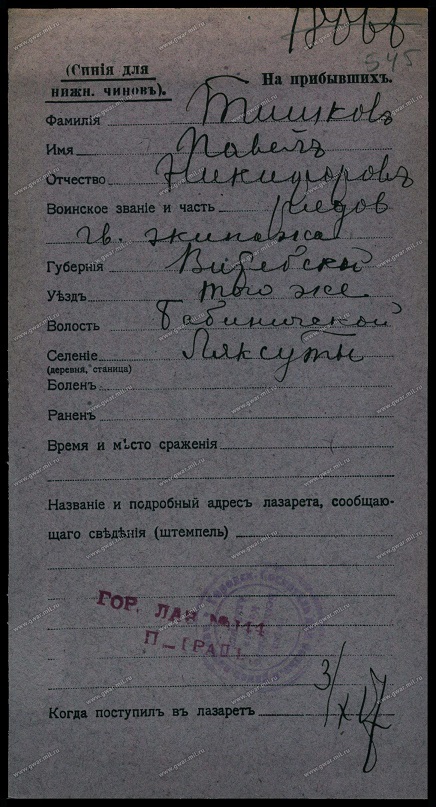 545
(Синія для
нижн. чиновъ).
На прибывшихъ.
Фамилія Тишковъ
Имя Павелъ
Отчество Никифоровъ
Воинское званіе и часть рядов
гв. экипажа
Губернія Витебской
Уѣздъ того же
Волость Бабиничской
Селеніе Ляксуты
(деревня, станица)
Боленъ
Раненъ
Время и мѣсто сраженія
Названіе и подробный адресъ лазарета, сообщаю-
щаго свѣдѣнія (штемпель)
ГОР. ЛАЗ №
П_ГРАДЪ
Когда поступилъ въ лазаретъ 3/XI 17
www.gwar.mil.ru